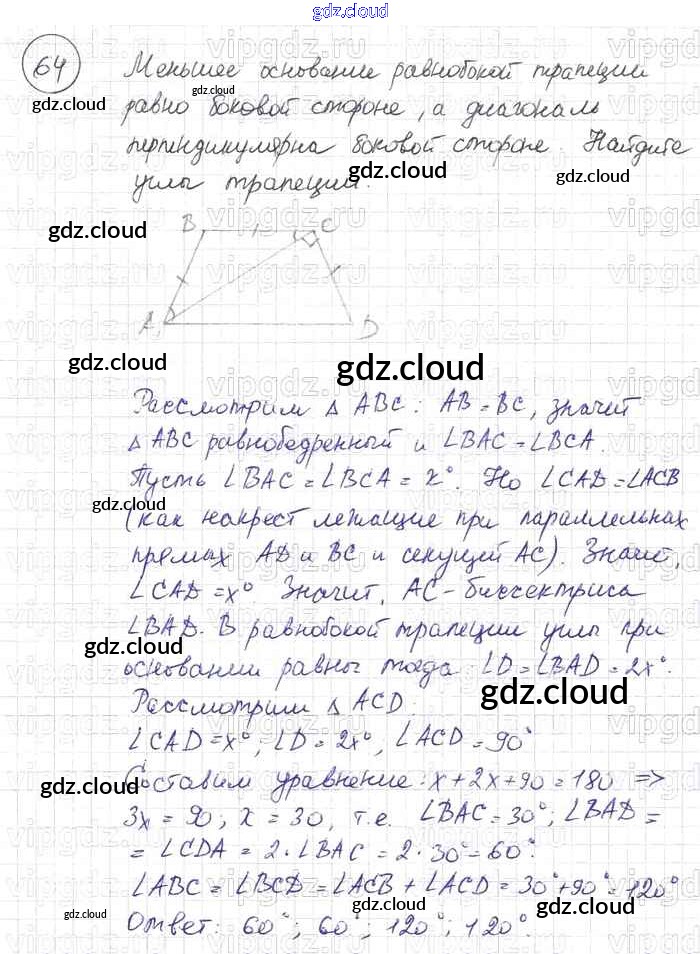 gdz.cloud
64
Меньшее основание равнобокой трапеции
gdz.cloud gdz.cloud
равно боковой стороне, а диагональ
перпендикулярна боковой стороне. Найдите
gdz.cloud gdz.cloud
углы трапеции.
gdz.cloud
B C
A D
gdz.cloud gdz.cloud
Рассмотрим △ ABC: AB = BC, значит
△ ABC равнобедренный и ∠BAC = ∠BCA.
Пусть ∠BAC = ∠BCA = x°. Но ∠CAD = ∠ACB
gdz.cloud
(как накрест лежащие при параллельных
прямых AD и BC и секущей AC). Значит,
∠CAD = x°. Значит, AC - биссектриса
∠BAD. В равнобокой трапеции углы при
gdz.cloud
основании равны тогда ∠D = ∠BAD = 2x°.
gdz.cloud
Рассмотрим △ ACD:
∠CAD = x°, ∠D = 2x°, ∠ACD = 90°
Составим уравнение: x + 2x + 90 = 180 =>
gdz.cloud
3x = 90; x = 30, т.е. ∠BAC = 30°; ∠BAD =
gdz.cloud
= ∠CDA = 2·∠BAC = 2·30° = 60°.
∠ABC = ∠BCD = ∠ACB + ∠ACD = 30° + 90° = 120°
gdz.cloud gdz.cloud
Ответ: 60°; 60°; 120°; 120°.